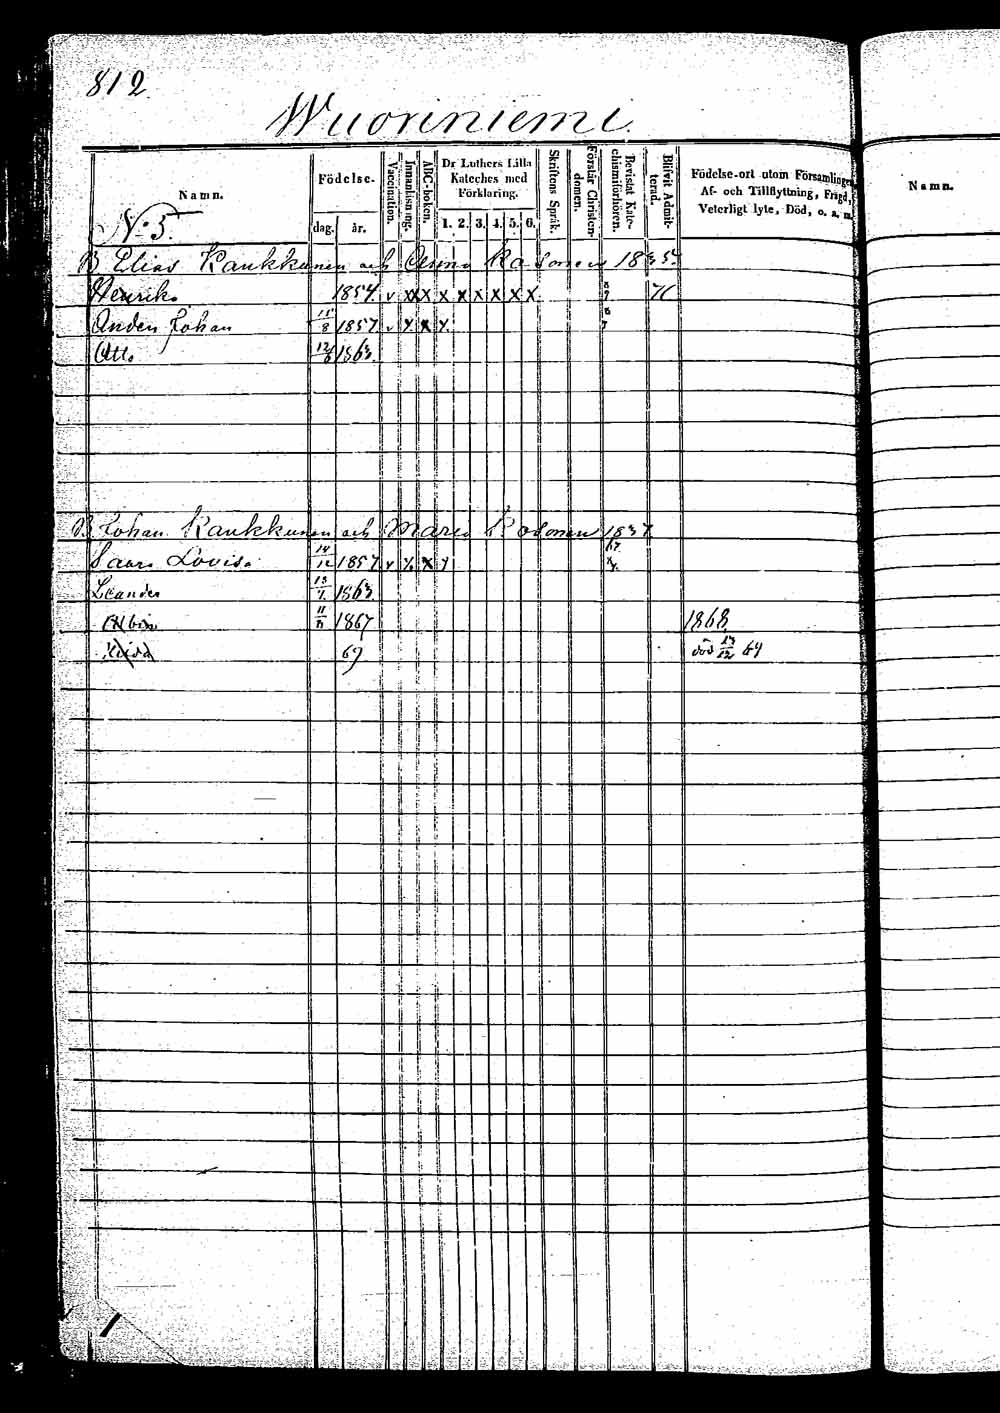 812
Wuoriniemi.
Namn.
Födelse-
dag. år.
Vaccination.
Innanläsning.
ABC-boken.
Dr Luthers Lilla Kateches med Förklaring.
1. 2. 3. 4. 5. 6.
Skriftens Språk.
Förstår Christendomen.
Bevistat Katechismiförhören.
Blifvit Admitterad.
Födelse-ort utom Församlingen,
Af- och Tillflyttning, Frägd,
Veterligt lyte, Död, o. s. m.
Namn.
No 5.
B. Elias Kaukkunen och Anna Kasonen 1835.
Henrik 1854. v x x x x x x x x x
Anders Johan 15/8 1857 v x x x
Otto 12/8 1863.
B. Johan Kaukkunen och Maria Kosonen 1837
Saara Lovisa 14/12 1857 v x x x
Leander 13/7. 1863.
Albin 11/11 1867 1868
69 död 13/12 69